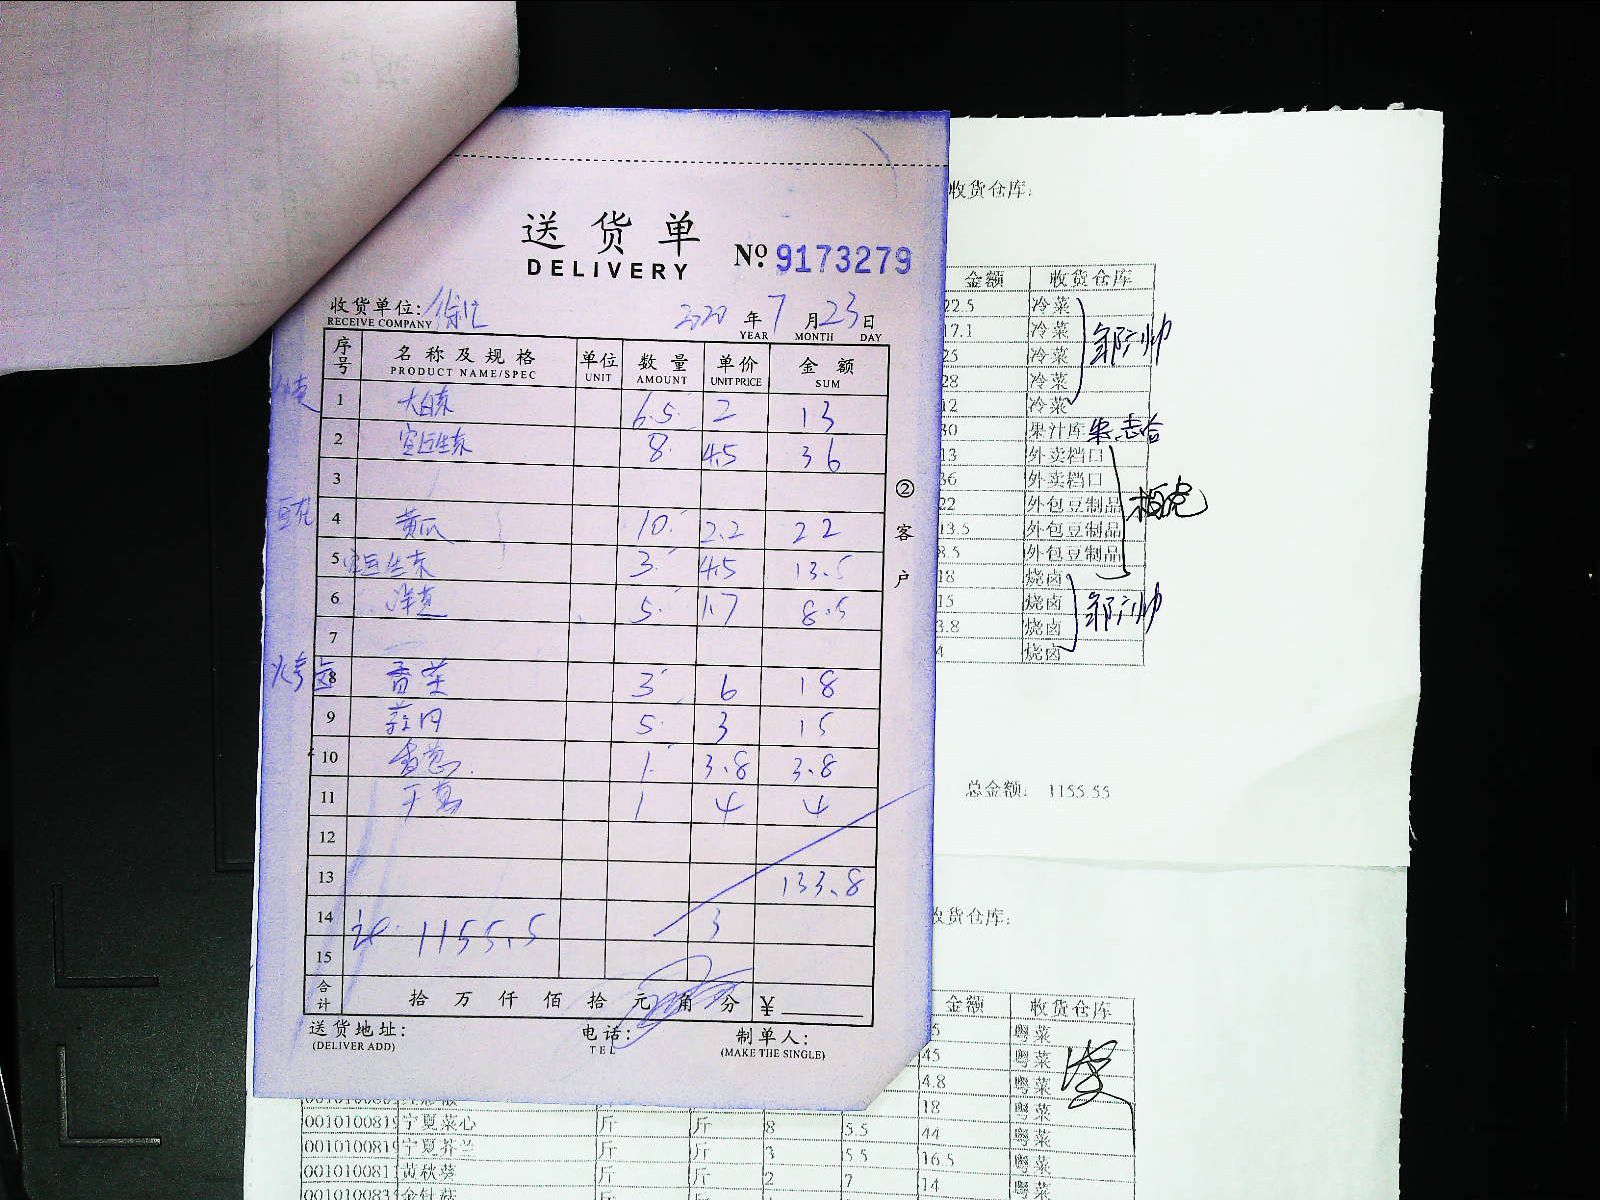 送货单
DELIVERY
№ 9173279
收货单位: 徐汇
RECEIVE COMPANY
2020 年 7 月 23 日
YEAR MONTH DAY
序号 名称及规格 单位 数量 单价 金额
PRODUCT NAME/SPEC UNIT AMOUNT UNIT PRICE SUM
外卖
1 大白菜 6.5 2 13
2 8 4.5 36
3
4 黄瓜 10 2.2 22
5 3 4.5 13.5
6 洋葱 5 1.7 8.5
7
烤卤
8 香芹 3 6 18
9 5 3 15
10 香葱 1 3.8 3.8
11 干葱 1 4 4
12
13 133.8
14 1155.5 3
15
合计 拾 万 仟 佰 拾 元 角 分 ¥
送货地址: 电话: 制单人:
(DELIVER ADD) TEL (MAKE THE SINGLE)
② 客户
收货仓库:
金额 收货仓库
22.5 冷菜
17.1 冷菜
25 冷菜
28 冷菜
12 冷菜
30 果汁库
13 外卖档口
36 外卖档口
22 外包豆制品
13.5 外包豆制品
8.5 外包豆制品
18 烧卤
15 烧卤
3.8 烧卤
4 烧卤
总金额: 1155.55
收货仓库:
金额 收货仓库
5 粤菜
45 粤菜
4.8 粤菜
18 粤菜
001010081 宁夏菜心 斤 斤 8 5.5 44 粤菜
001010081 宁夏芥兰 斤 斤 3 5.5 16.5 粤菜
001010081 黄秋葵 斤 斤 2 7 14 粤菜